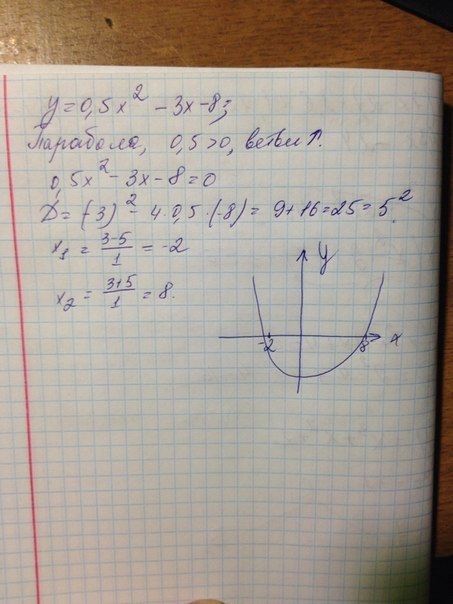 y=0,5x²-3x-8;
Парабола, 0,5>0, ветви ↑.
0,5x²-3x-8=0
D=(-3)²-4·0,5·(-8)=9+16=25=5².
x₁=\frac{3-5}{1}=-2
x₂=\frac{3+5}{1}=8.
y
-2 8 x